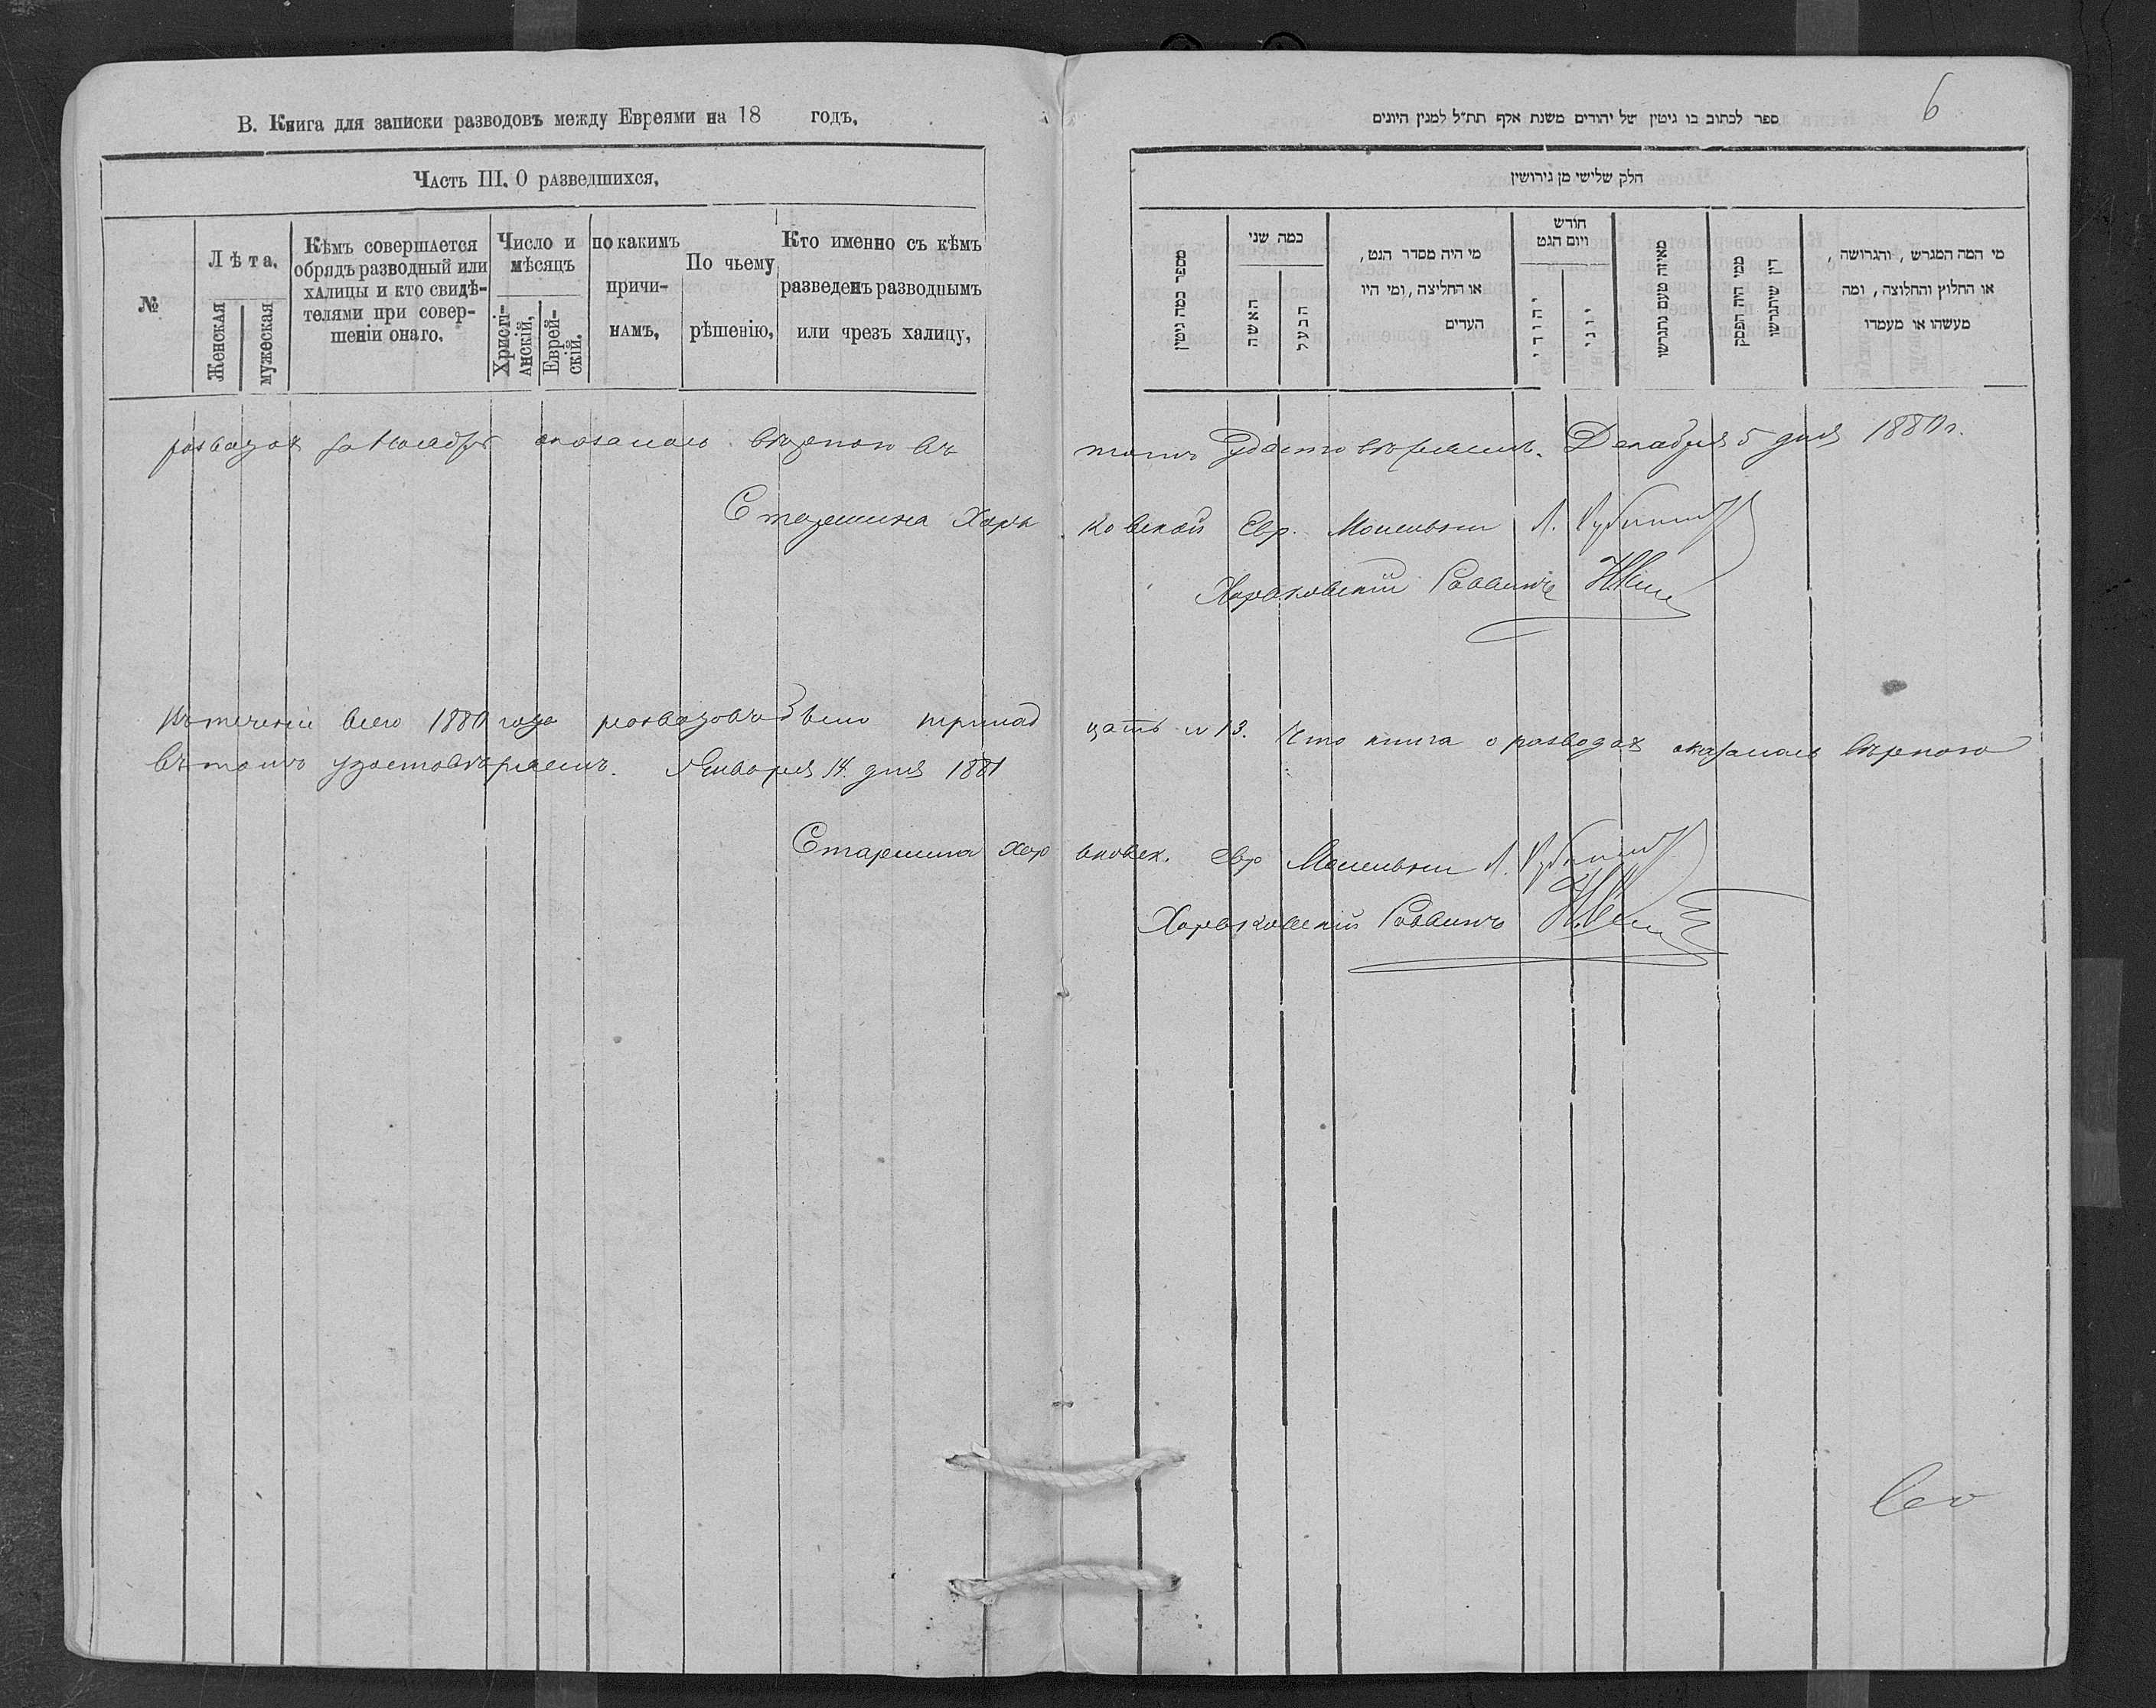 В. Книга для записки разводовъ между Евреями на 18 годъ.
Часть III. О разведшихся.
№
Лѣта.
Женская
мужеская
Кѣмъ совершается
обрядъ разводный или
халицы и кто свидѣ-
телями при совер-
шеніи онаго.
Число и
мѣсяцъ
Христі-
анскій,
Еврей-
скій.
по какимъ
причи-
намъ,
По чьему
рѣшенію,
Кто именно съ кѣмъ
разведенъ разводнымъ
или чрезъ халицу,
6
ספר לכתוב בו גיטין של יהודים משנת אלף תת״ל למנין היונים
חלק שלישי מן גירושין
מספר כמה גיטין
כמה שני
האשה
הבעל
מי היה מסדר הגט,
או החליצה, ומי היו
העדים
חודש
ויום הגט
יהודי
יוני
מאיזה טעם נתגרשו
ממי היה הפסק
דין שיתגרשו
מי המה המגרש, והגרושה,
או החלוץ והחלוצה, ומה
מעשהו או מעמדו
разводах за Ноябрь оказалась вѣрною въ томъ удостовѣряемъ. Декабря 5 дня 1880 г.
Старшина Харьковской Евр. Молельни Л.
Харьковскій Раввинъ
Въ теченіи всего 1880 года разводовъ было тринадцать и 13. Что книга о разводах оказалась вѣрною
въ томъ удостовѣряемъ. Января 14 дня 1881
Старшина Харьковск. Евр Молельни Л.
Харьковскій Раввинъ